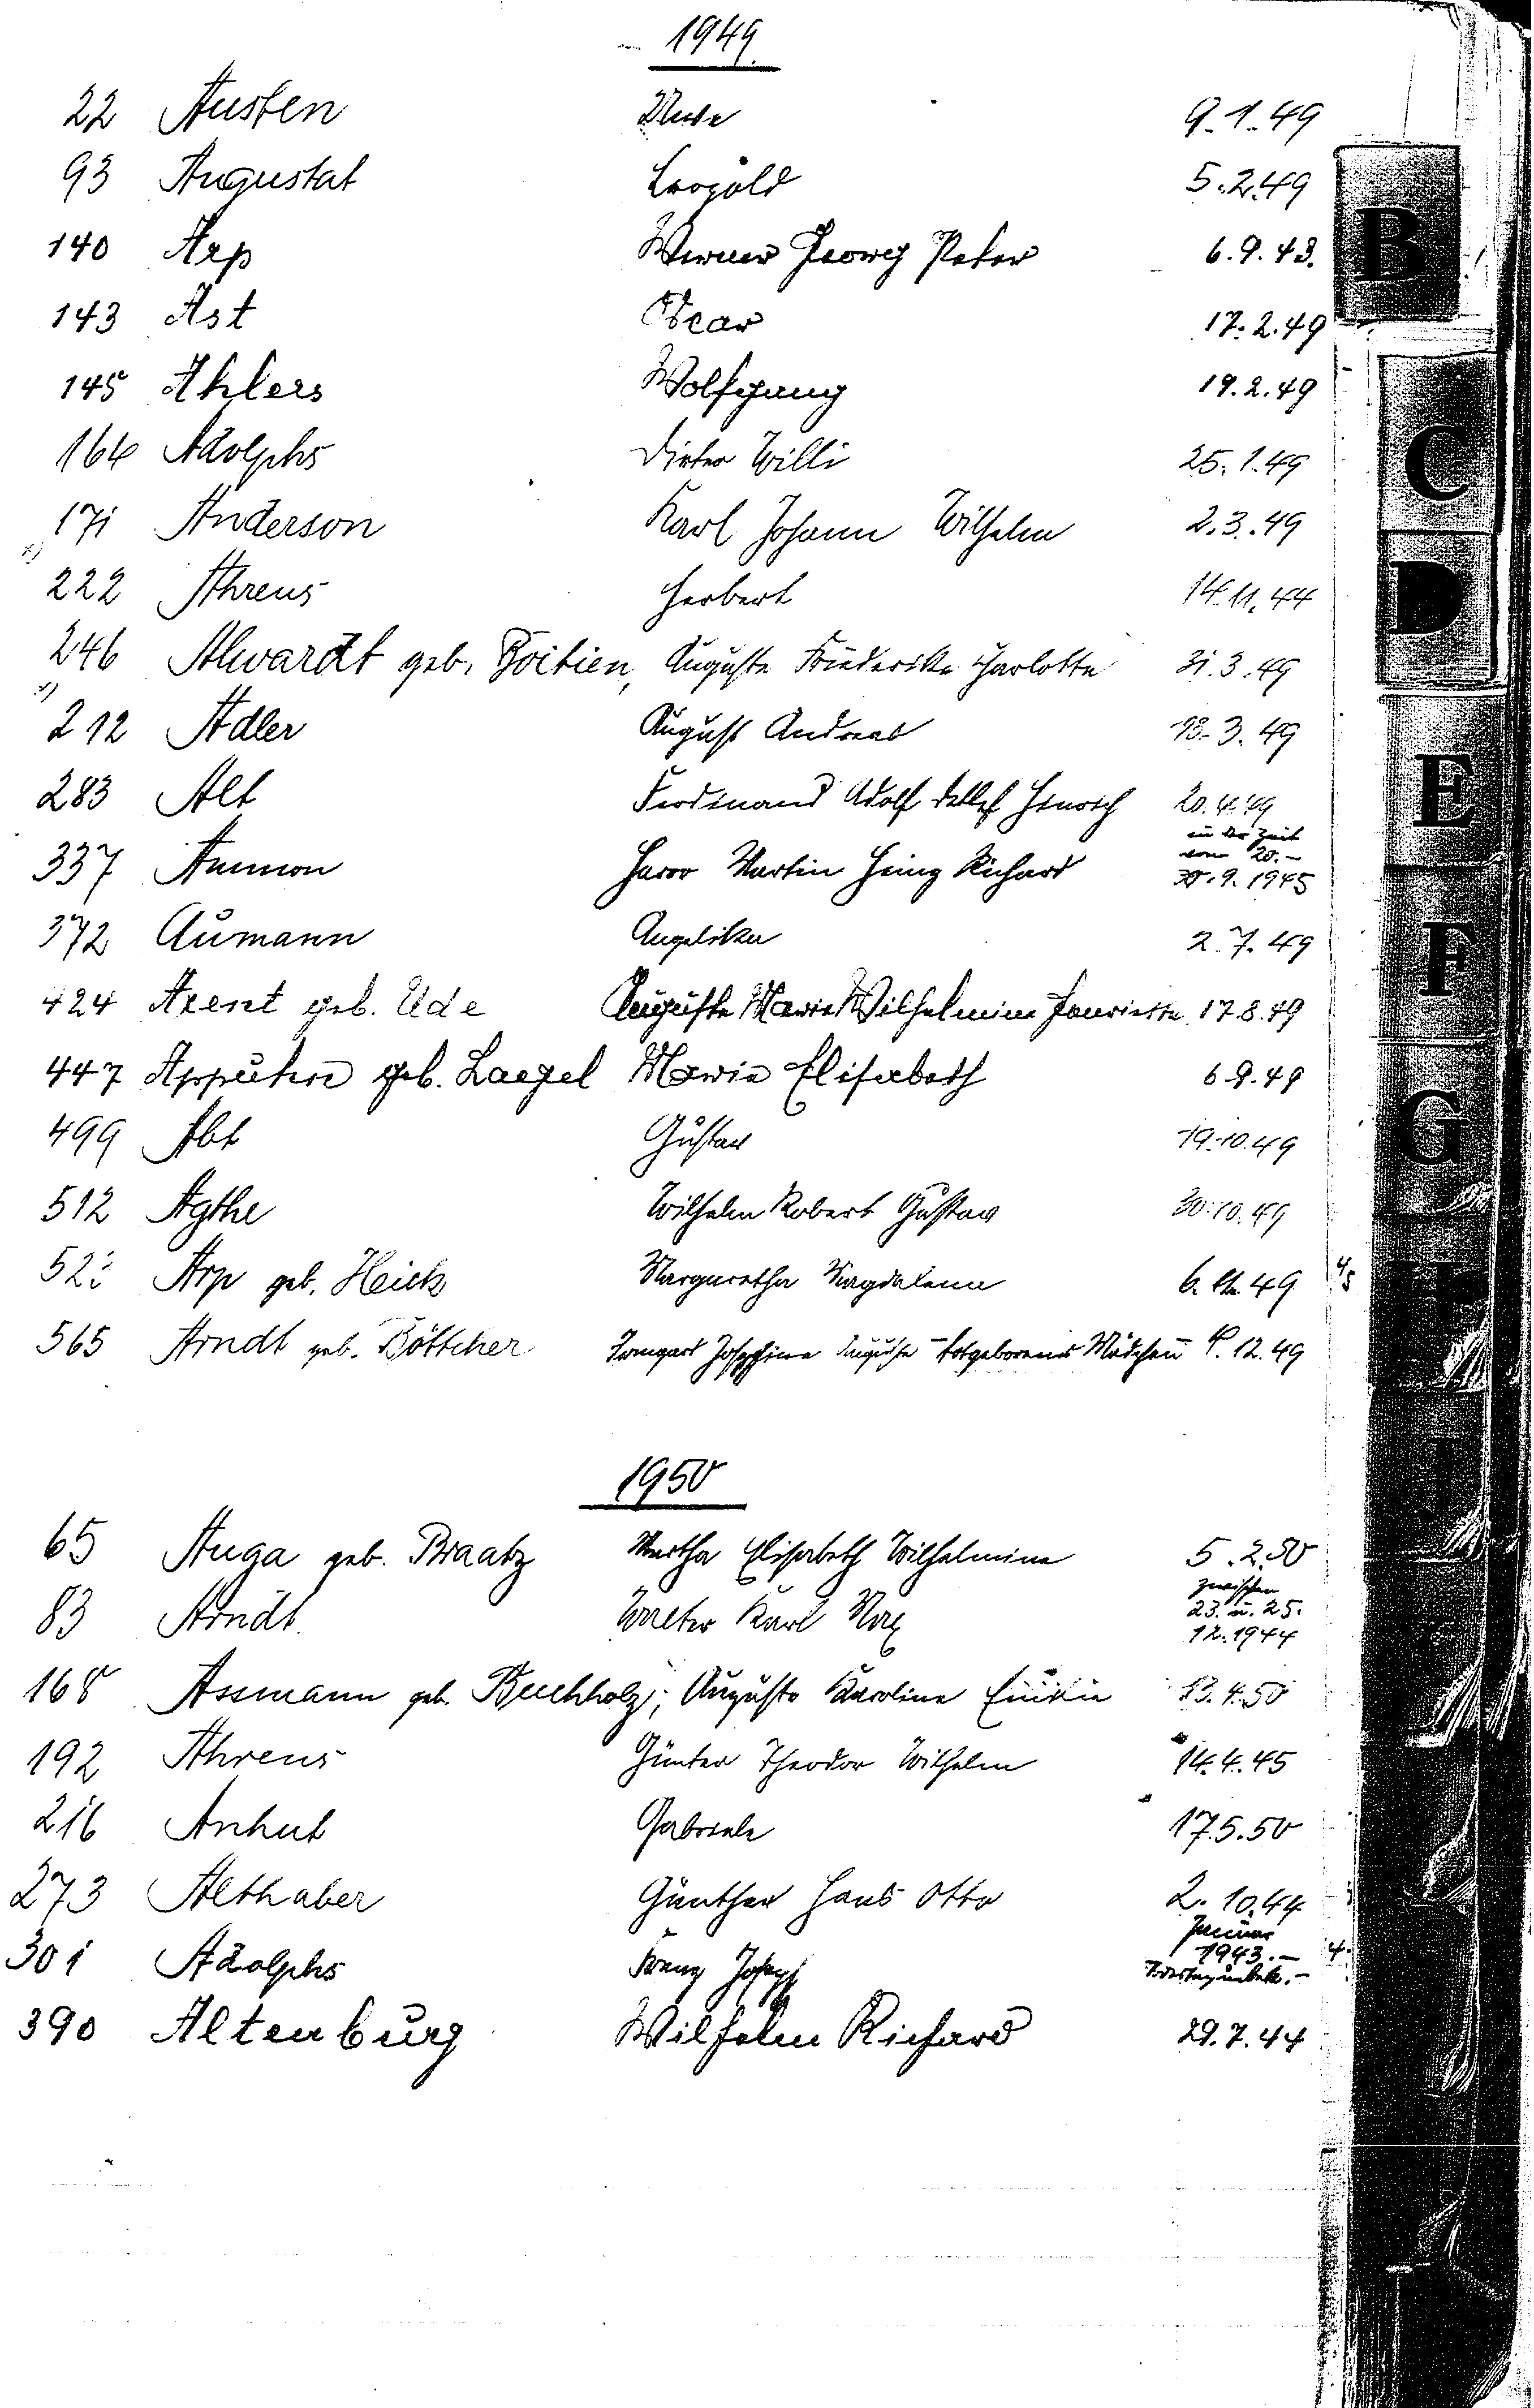 1949.
22 Austen Uwe 9.1.49
93 Augustat Leopold 5.2.49
140 Arp Werner Georg Peter 6.9.43.
143 Ast Oscar 17.2.49
145 Ahlers Wolfgang 19.2.49
164 Adolphs Dieter Willi 25.1.49
171 Anderson Karl Johann Wilhelm 2.3.49
x)
222 Ahrens Herbert 14.11.44
246 Alwardt geb. Boitien, Auguste Friederike Charlotte 31.3.49
x)
212 Adler August Andreas 18.3.49
283 Alt Ferdinand Adolf Detlef Hinrich 20.4.49
337 Ammon Harro Martin Heinz Richard in der Zeit
vom 20.-
30.9.1945
372 Aumann Angelika 2.7.49
424 Arent geb. Ude Auguste Marie Wilhelmine Henriette 17.8.49
447 Appuhn geb. Laegel Marie Elisabeth 6.9.49
499 Abt Gustav 19.10.49
512 Agthe Wilhelm Robert Gustav 30.10.49
521 Arp geb. Heick Margaretha Magdalena 6. 49
565 Arndt geb. Böttcher Irmgard Josephine Auguste - totgeborenes Mädchen 12.49
1950
65 Auga geb. Braatz Martha Elisabeth Wilhelmine 5.2.50
83 Arndt Walter Karl Max zwischen
23. u. 25.
12.1944
168 Assmann geb. Buchholz, Auguste Karoline Emilie 13.4.50
192 Ahrens Günter Theodor Wilhelm 14.4.45
216 Anhut Gabriele 17.5.50
273 Althaber Günther Hans Otto 2.10.44
301 Adolphs Franz Joseph Januar
1943.-
Todestag unbek.-
390 Altenburg Wilhelm Richard 29.7.44
B
C
D
E
F
G